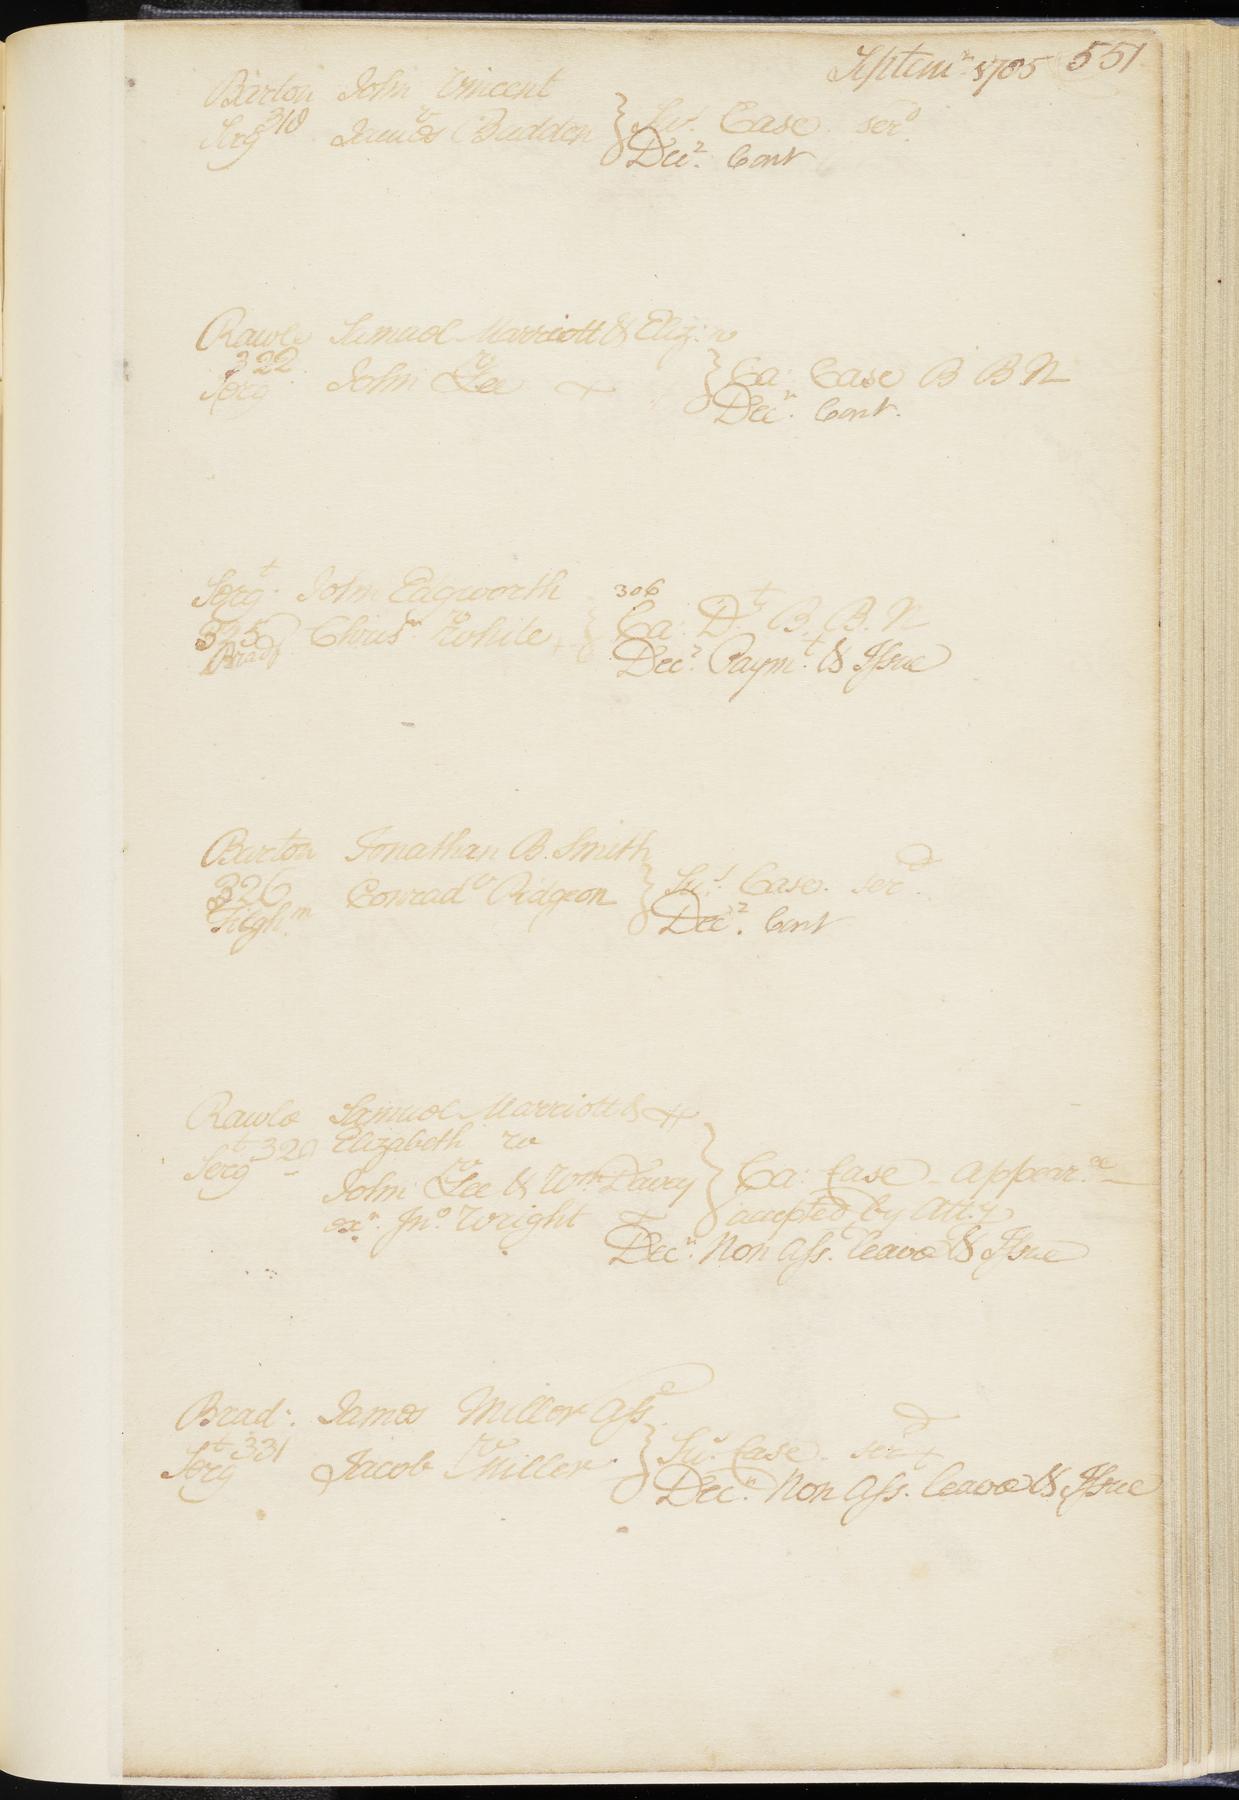 Septem.r 1785 551
Barton John Vincent
Serg 318 v James Budden } Su.s Case ser.d
Dec.r Cont
Rawle Samuel Marriott & Eliz: w
322
Serg v John Lee } Ca: Case B B N
Dec.r Cont.
Serg.t John Edgworth 306
325 Chris.n v White + } Ca. D.t B. B. N
Brad Dec.r Paym.t & Issue
Barton Jonathan B. Smith
326 Conrad v Pidgeon } Su.s Case. ser.d
Tilgh.m Dec.r Cont
Rawle Samuel Marriott &
Serg.t 329 Elizabeth w
v John Lee & Wm Davey } Ca: Case appear.ce
ex.rs Jn.o Wright accepted by Att.y
Dec.r Non Ass. leave & Issue
Brad. James Miller Ass.e
Serg.t 331 v Jacob Miller } Su.s Case ser.d
Dec.r Non Ass. leave & Issue